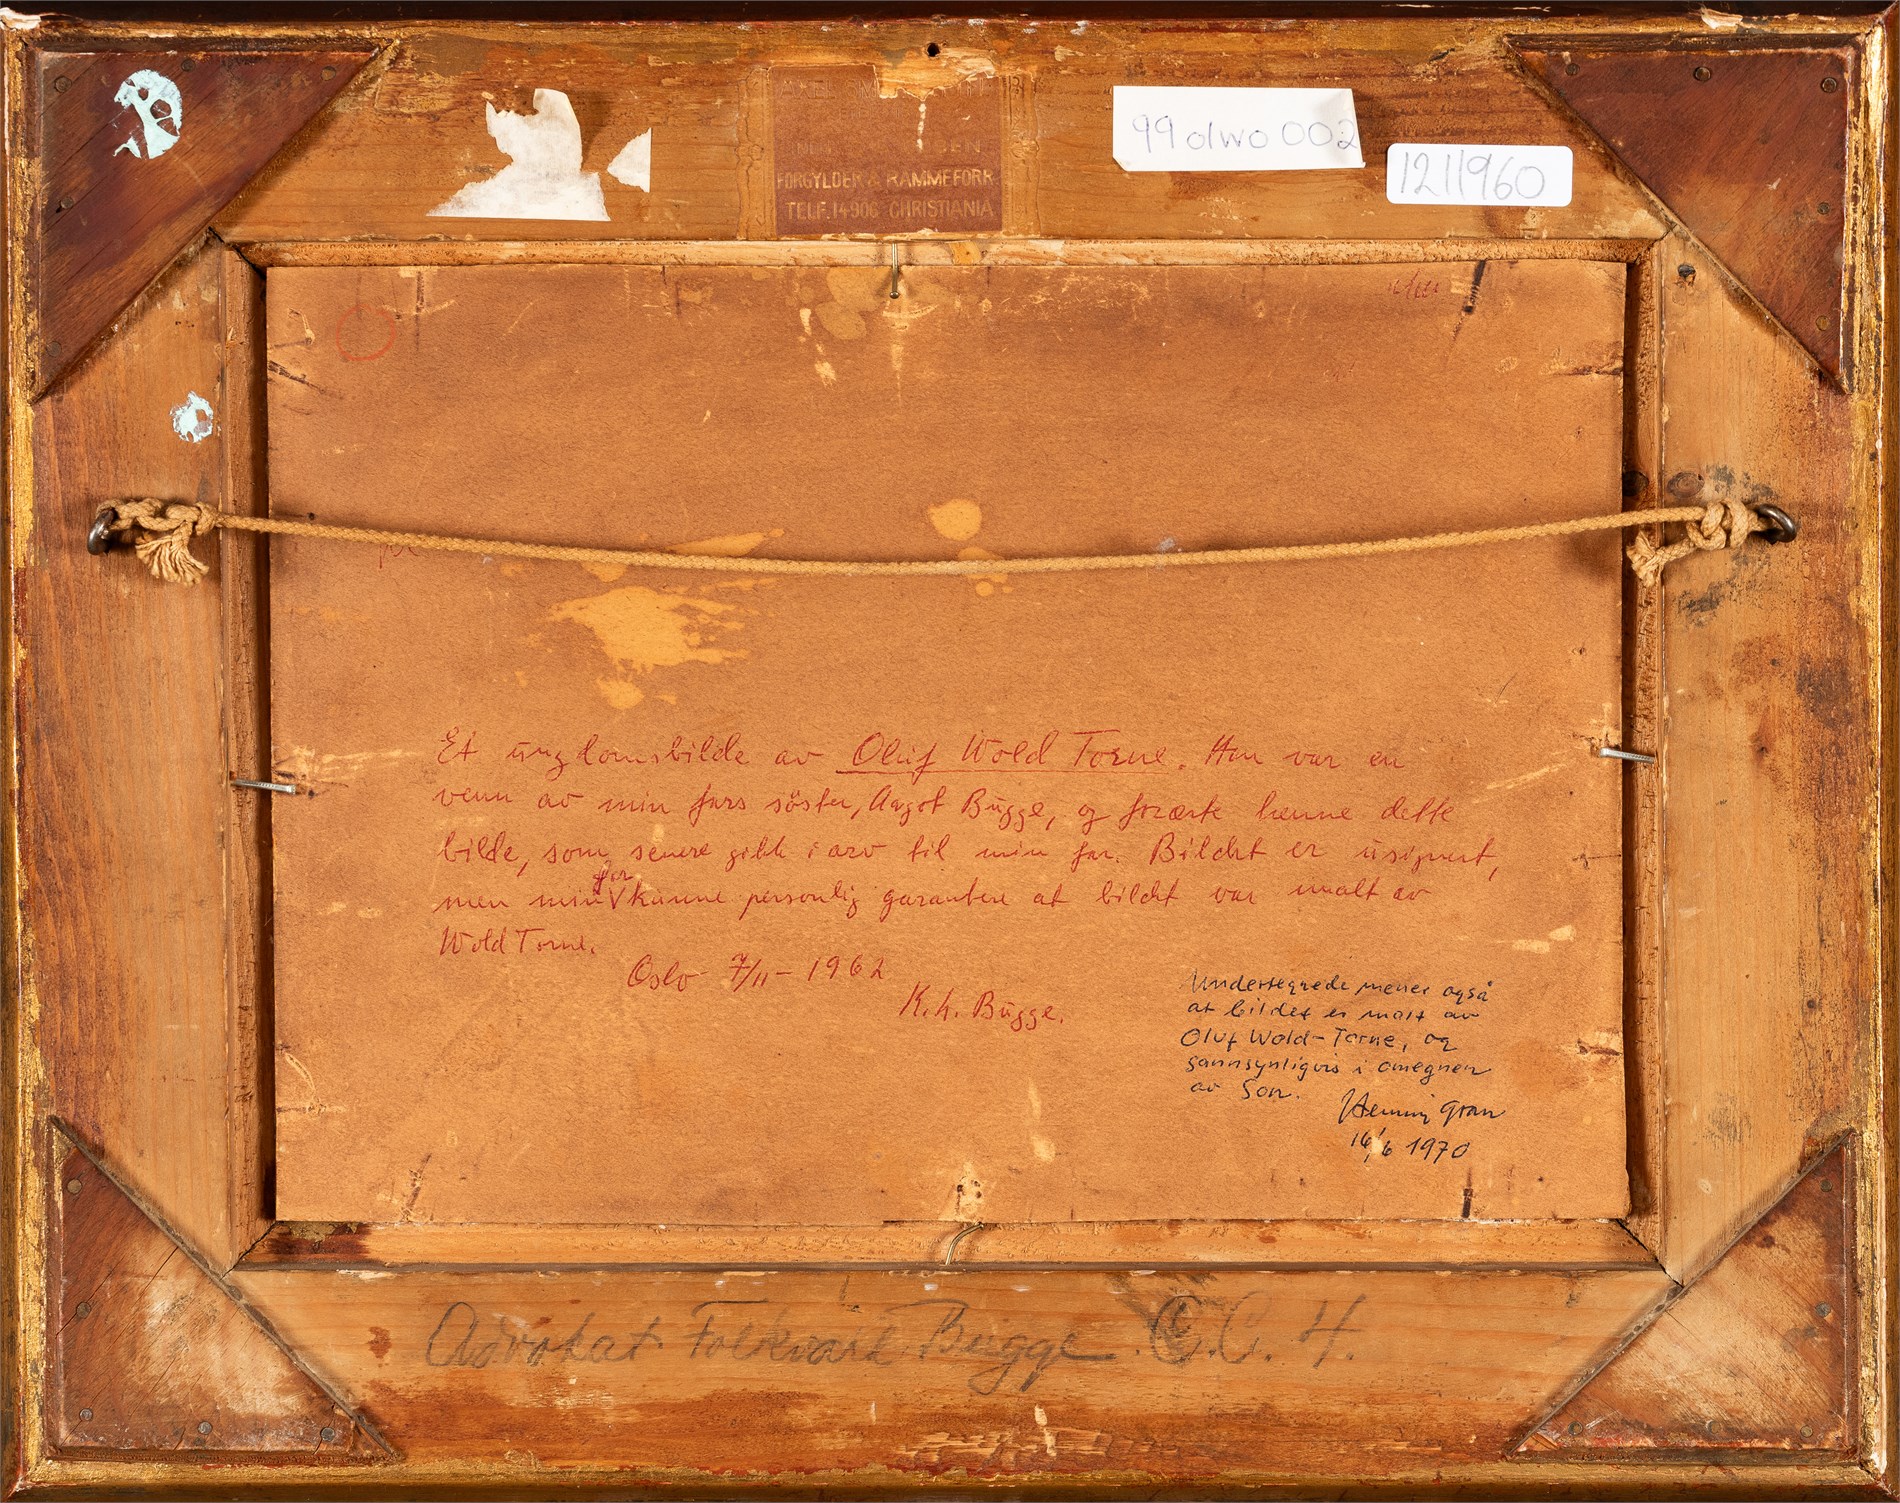 99 olwo 002
1211960
FORGYLDER & RAMMEFORR.
TELF. 14906 CHRISTIANIA
Et ungdomsbilde av Oluf Wold Torne. Han var en
venn av min fars søster, Aagot Bugge, og forærte henne dette
bilde, som senere gikk i arv til min far. Bildet er usignert,
far
men min V kunne personlig garantere at bildet var malt av
Wold Torne.
Oslo 7/11 - 1962
K. h. Bugge.
Undertegnede mener også
at bildet er malt av
Oluf Wold-Torne, og
sannsynligvis i omegnen
av Son.
Henning Gran
16/6 1970
Advokat Folkvard Bugge. C.C. 4.